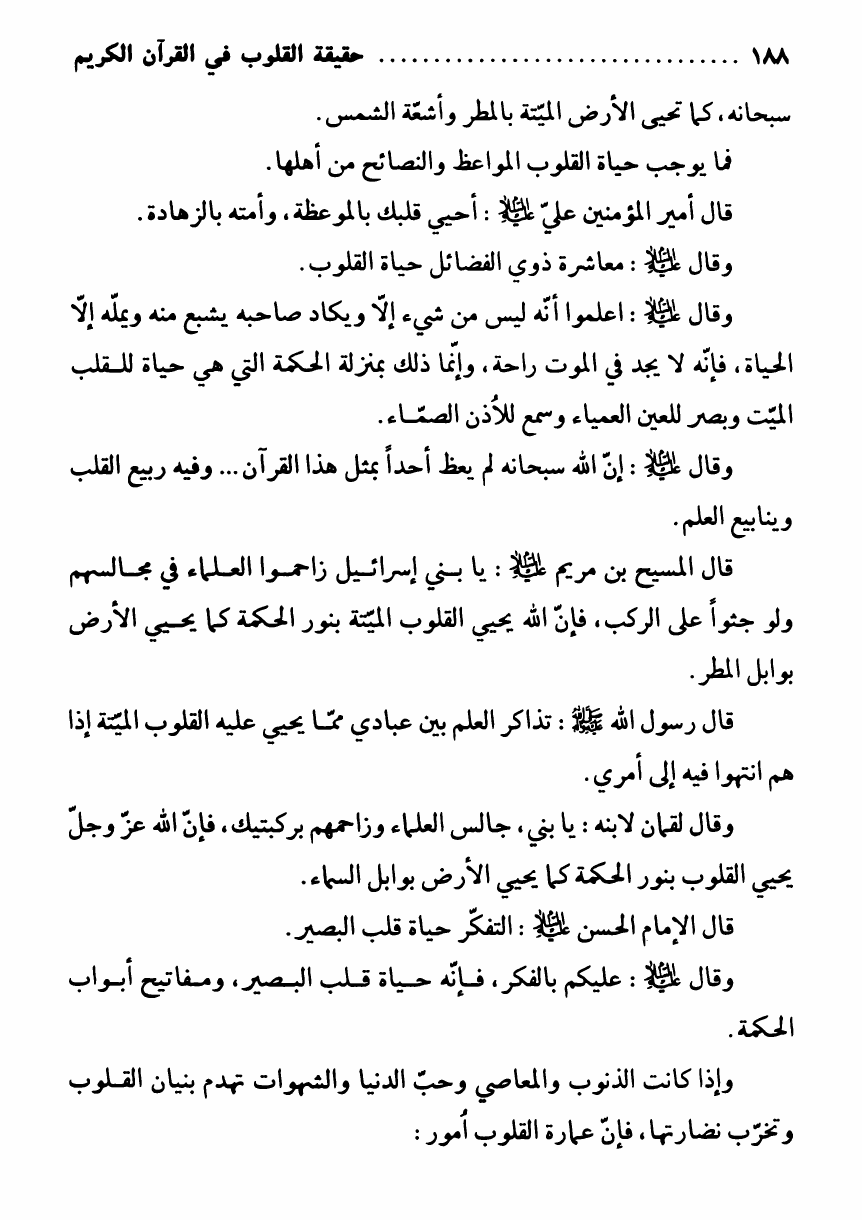 ١٨٨ ................................. حقيقة القلوب في القرآن الكريم
سبحانه، كما تحيى الأرض الميّتة بالمطر وأشعّة الشمس.
فما يوجب حياة القلوب المواعظ والنصائح من أهلها.
قال أمير المؤمنين عليّ عليه السلام : أحيي قلبك بالموعظة، وأمته بالزهادة.
وقال عليه السلام : معاشرة ذوي الفضائل حياة القلوب.
وقال عليه السلام : اعلموا أنّه ليس من شيء إلّا ويكاد صاحبه يشبع منه ويملّه إلّا
الحياة، فإنّه لا يجد في الموت راحة، وإنّما ذلك بمنزلة الحكمة التي هي حياة للقلب
الميّت وبصر للعين العمياء وسمع للاُذن الصمّاء.
وقال عليه السلام : إنّ الله سبحانه لم يعظ أحداً بمثل هذا القرآن... وفيه ربيع القلب
وينابيع العلم.
قال المسيح بن مريم عليه السلام : يا بني إسرائيل زاحموا العلماء في مجالسهم
ولو جثواً على الركب، فإنّ الله يحيي القلوب الميّتة بنور الحكمة كما يحيي الأرض
بوابل المطر.
قال رسول الله ﷺ : تذاكر العلم بين عبادي ممّا يحيي عليه القلوب الميّتة إذا
هم انتهوا فيه إلى أمري.
وقال لقمان لابنه : يا بني، جالس العلماء وزاحمهم بركبتيك، فإنّ الله عزّ وجلّ
يحيي القلوب بنور الحكمة كما يحيي الأرض بوابل السماء.
قال الإمام الحسن عليه السلام : التفكّر حياة قلب البصير.
وقال عليه السلام : عليكم بالفكر، فإنّه حياة قلب البصير، ومفاتيح أبواب
الحكمة.
وإذا كانت الذنوب والمعاصي وحبّ الدنيا والشهوات تهدم بنيان القلوب
وتخرّب نضارتها، فإنّ عمارة القلوب اُمور :